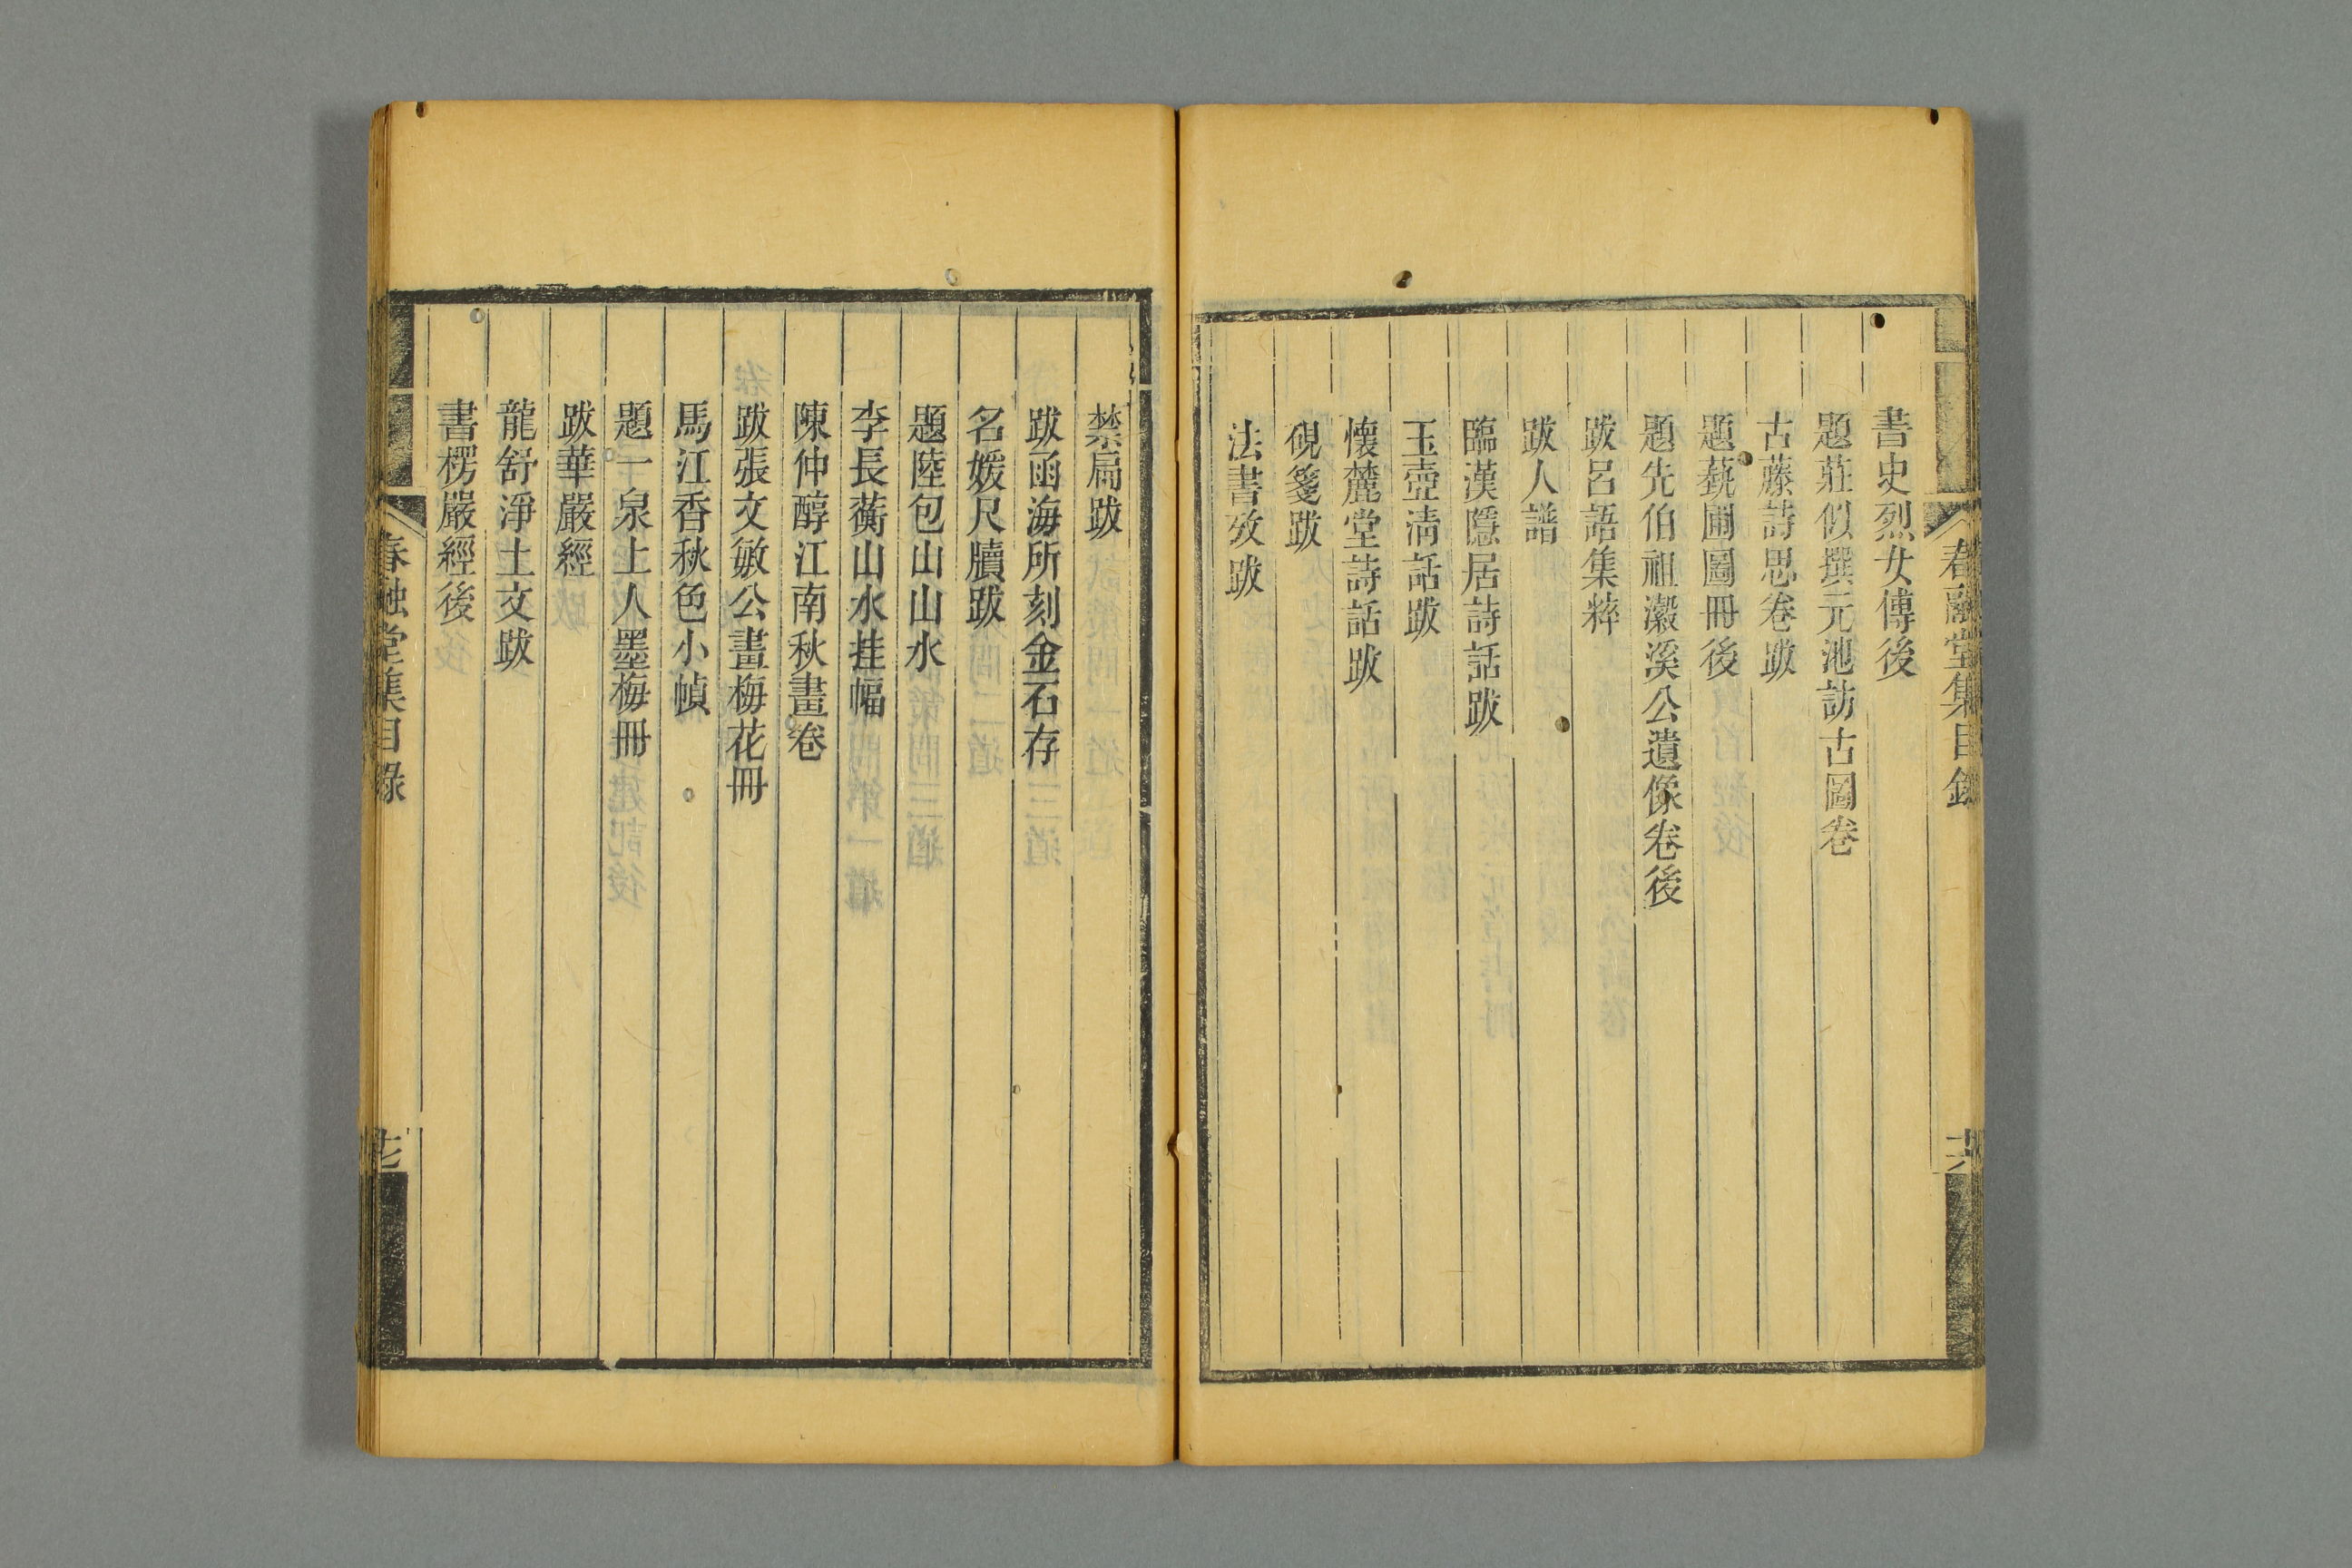 春融堂集目錄
書史烈女傳後
題莊似撰元池訪古圖卷
古藤詩思卷跋
題蓺圃圖冊後
題先伯祖瀫溪公遺像卷後
跋呂語集粹
跋人譜
臨漢隱居詩話跋
玉壺清話跋
懷麓堂詩話跋
硯箋跋
法書攷跋
禁扁跋
跋函海所刻金石存
名媛尺牘跋
題陸包山山水
李長蘅山水挂幅
陳仲醇江南秋畫卷
跋張文敏公畫梅花冊
馬江香秋色小幀
題一泉上人墨梅冊
跋華嚴經
龍舒淨土文跋
書楞嚴經後
春融堂集目錄